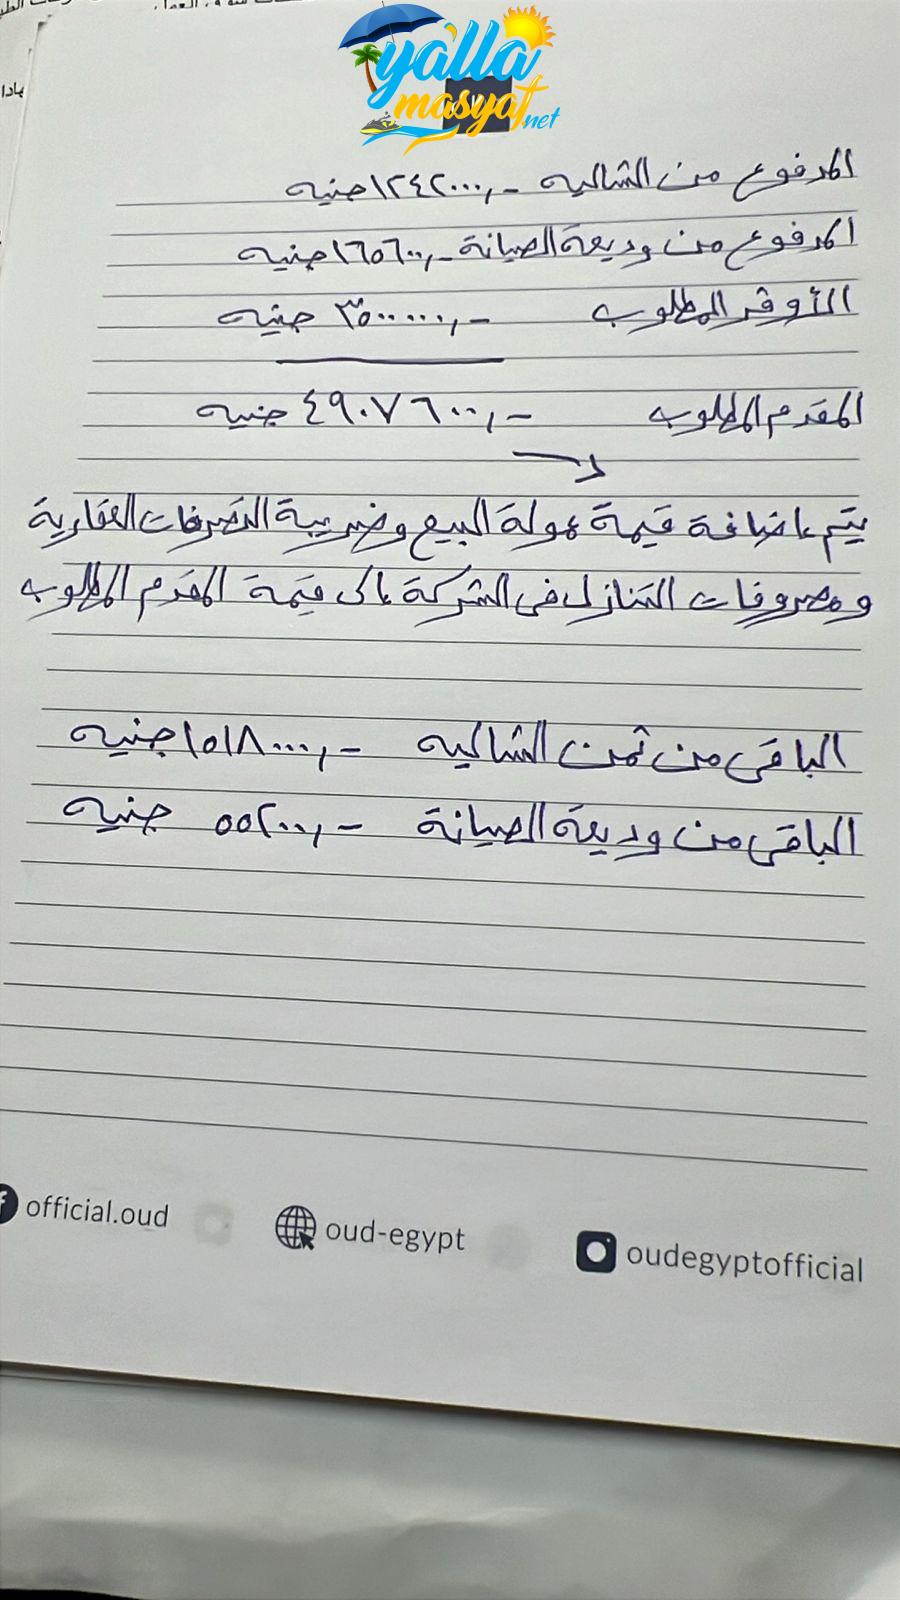 yalla
masyaf.net
المدفوع من الشاليه ١٢٤٢٠٠٠,– جنيه
المدفوع من وديعة الصيانة ١٦٥٦٠٠,– جنيه
الأوفر المطلوب ٣٥٠٠٠٠٠,– جنيه
المقدم المطلوب ٤٩٠٧٦٠٠,– جنيه
يتم إضافة قيمة عمولة البيع وضريبة التصرفات العقارية
ومصروفات التنازل فى الشركة إلى قيمة المقدم المطلوب
الباقى من ثمن الشاليه ١٥١٨٠٠٠,– جنيه
الباقى من وديعة الصيانة ٥٥٢٠٠,– جنيه
official.oud oud-egypt oudegyptofficial